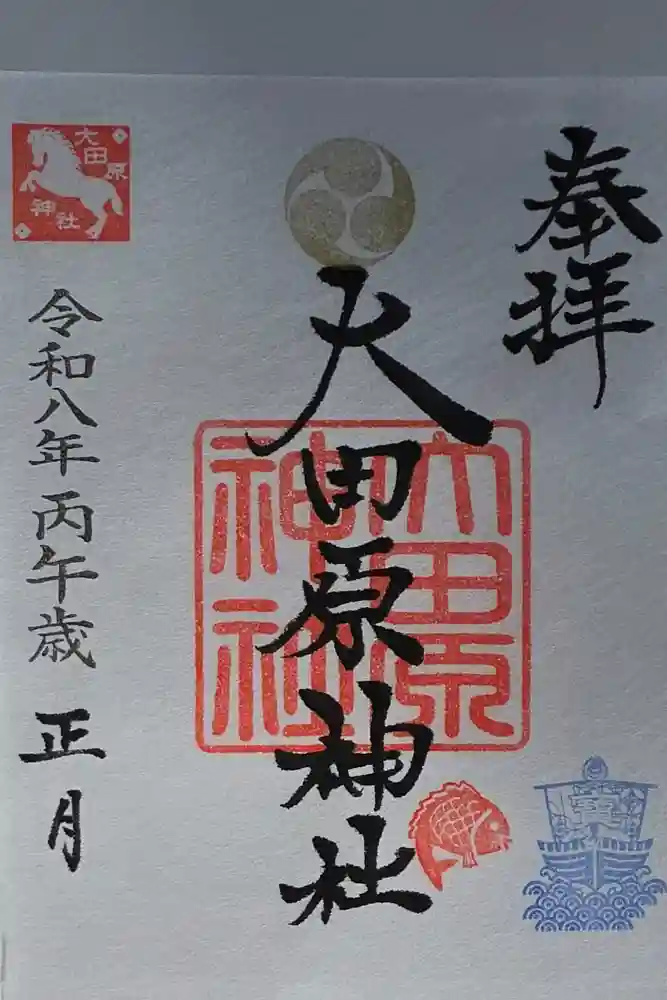 奉拝
大田原神社
大田原
神社
大田原
神社
令和八年丙午歳
正月
寳